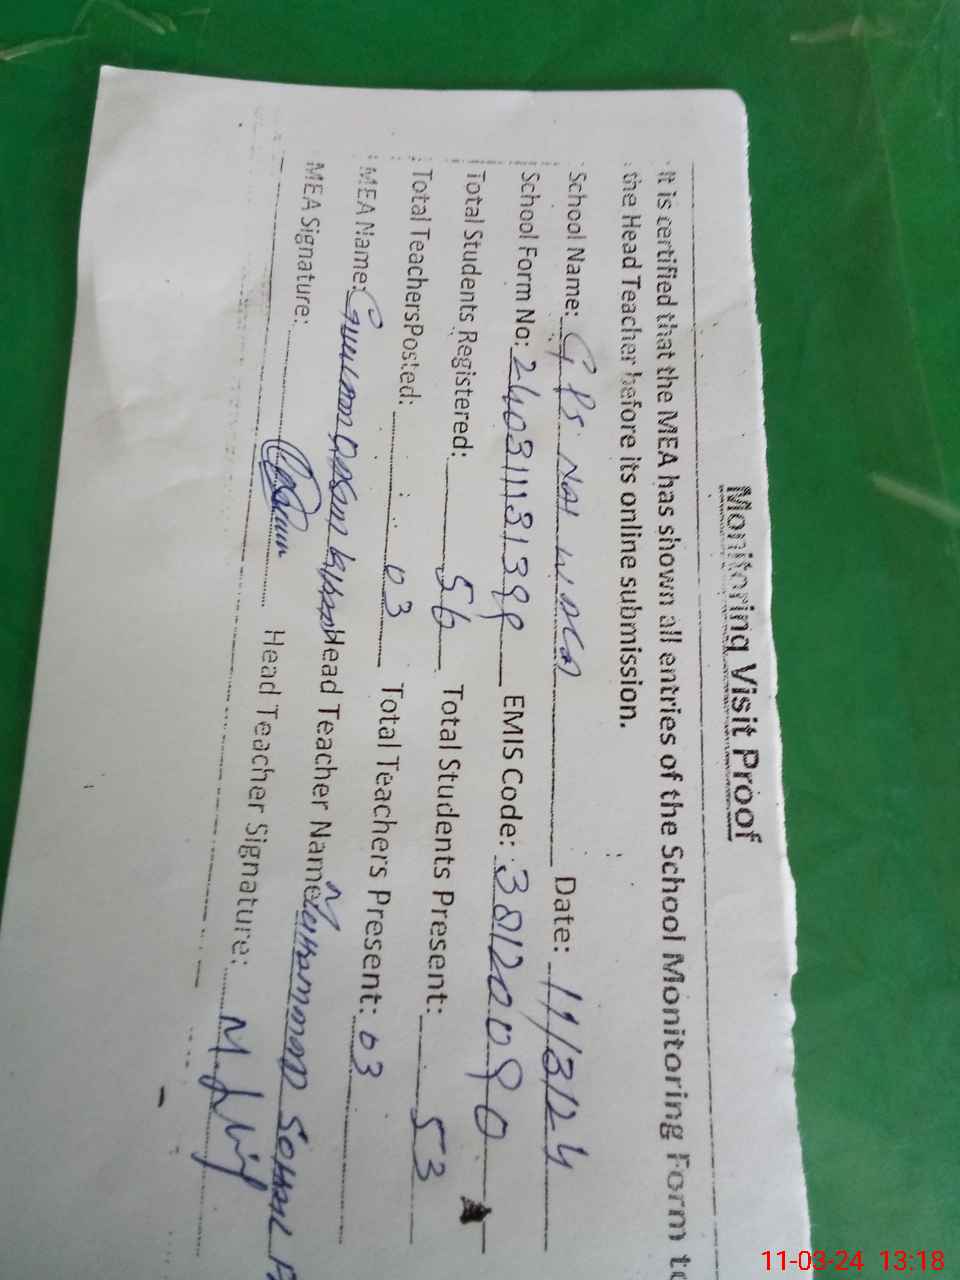 Monitoring Visit Proof
It is certified that the MEA has shown all entries of the School Monitoring Form to
the Head Teacher before its online submission.
School Name: GPS NOH WALA Date: 11/3/24
School Form No: 24031113199 EMIS Code: 38120090
Total Students Registered: 56 Total Students Present: 53
Total TeachersPosted: 03 Total Teachers Present: 03
MEA Name: Head Teacher Name Muhammad Sohail
MEA Signature: Head Teacher Signature:
11-03-24 13:18